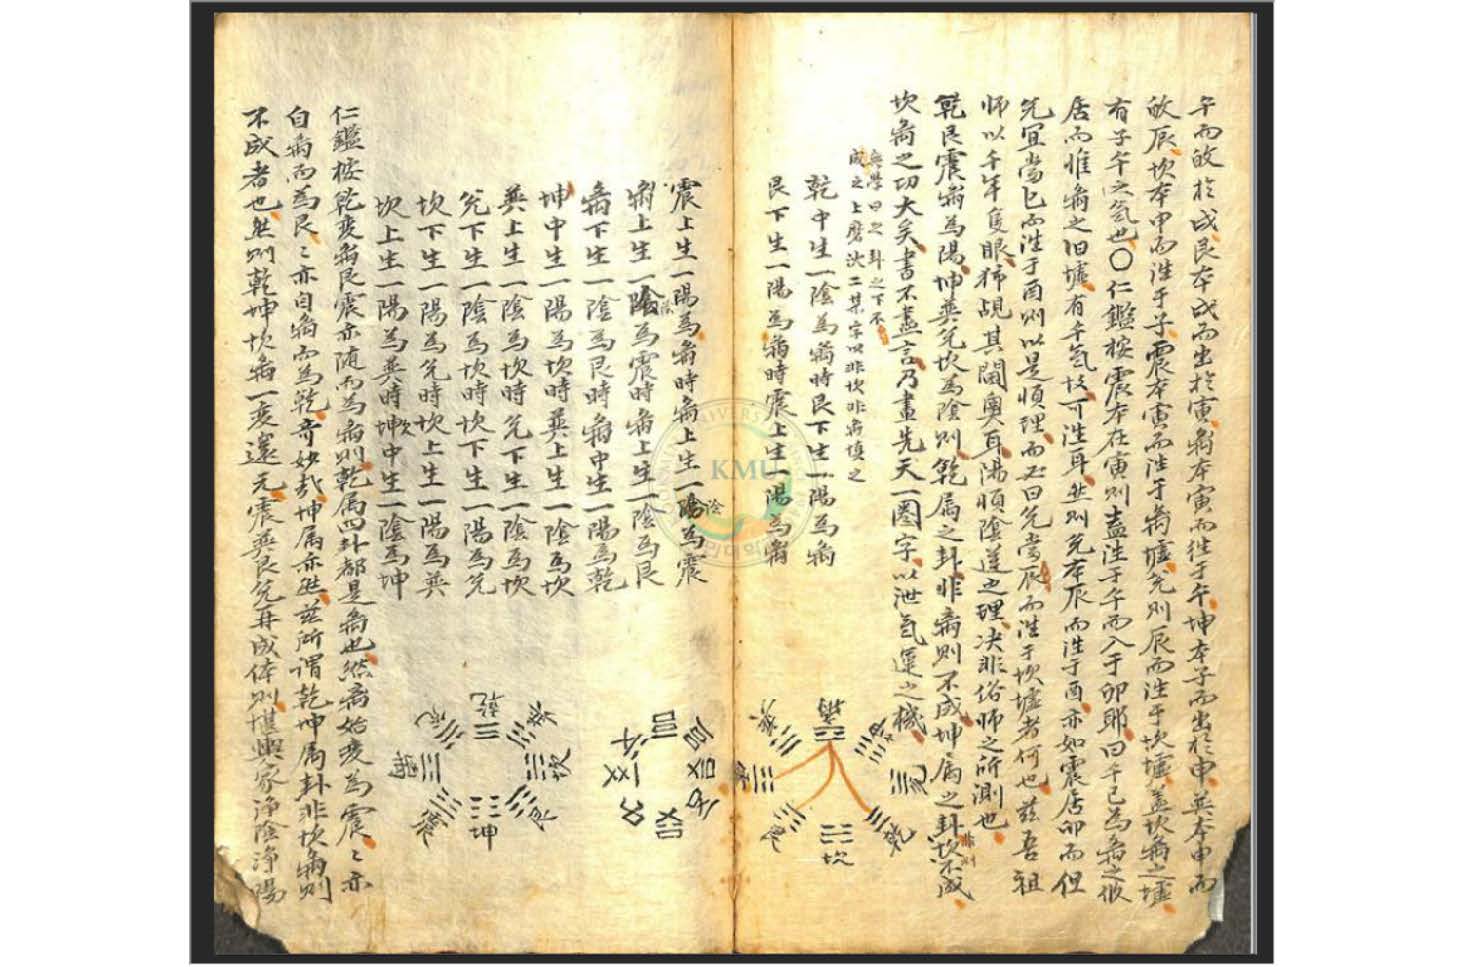 午而故於戌艮本戌而出於寅离本寅而徃于午坤本子而出於申巽本申而
故辰坎本申而徃于子震本寅而徃于离墟兌則辰而徃于坎墟盖坎离之墟
有子午之氣也〇仁鑑桉震本在寅則盍徃于午而入于卯耶曰午已為离之似
居而惟离之旧墟有午氣故可徃耳然則兌本辰而徃于酉亦如震居卯而但
兌宜當巳而徃于酉則似是順理而必曰兌當辰而徃于坎墟者何也兹吾祖
師以千年隻眼狶覘其閫奧耳陽順陰逆之理决非俗師之所測也
乾艮震离為陽坤巽兌坎為陰則乾属之卦非离則不成坤属之卦非坎則不成
坎离之功大矣書不盡言乃畫先天一圈字以泄氣運之機
無學曰之卦之下不
成之上磨決二某字以非坎非离填之
乾中生一陰為离時艮下生一陽為离
艮下生一陽為离時震上生一陽為离
震上生一陽為离時离上生一陰為震
离上生一陰為震時离上生一陰為艮
离下生一陰為艮時离中生一陽為乾
坤中生一陽為坎時巽上生一陰為坎
巽上生一陰為坎時兌下生一陰為坎
兌下生一陰為坎時坎下生一陽為兌
坎下生一陽為兌時坎上生一陽為巽
坎上生一陽為巽時坤坎中生一陰為坤
仁鑑桉乾変离艮震亦随而為离則乾属四卦都是离也然离始变為震ミ亦
自离而為艮ミ亦自离而為乾奇妙哉坤属亦然兹所謂乾坤属卦非坎离則
不成者也然則乾坤坎离一变還元震巽艮兌再成体則堪輿家淨陰淨陽
离
坎
乾
艮
兌
巽
KMU
乾
坎
艮
坤
震
离
兌
巽